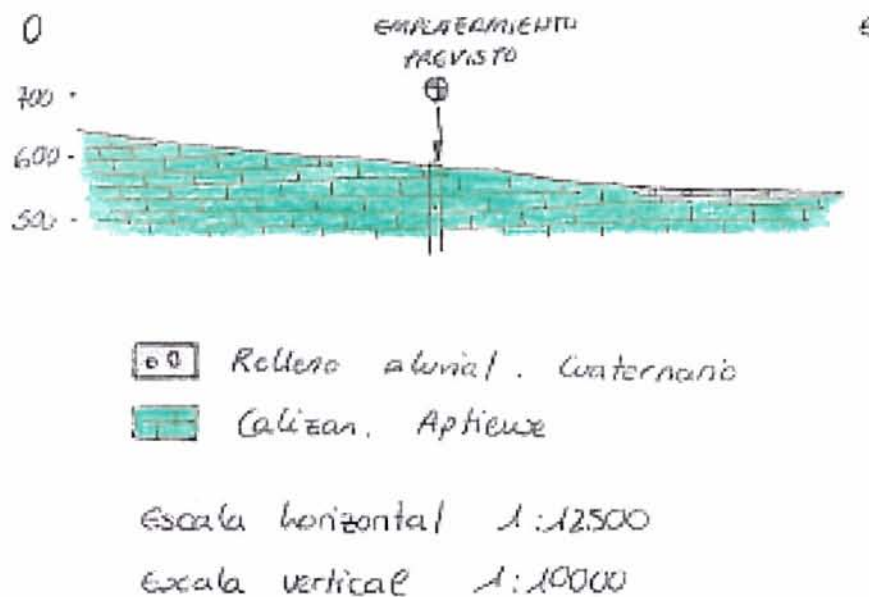 O E
EMPLAZAMIENTO
PREVISTO
700
600
500
Relleno aluvial. Cuaternario
Calizas. Aptiense
Escala horizontal 1:12500
Escala vertical 1:10000